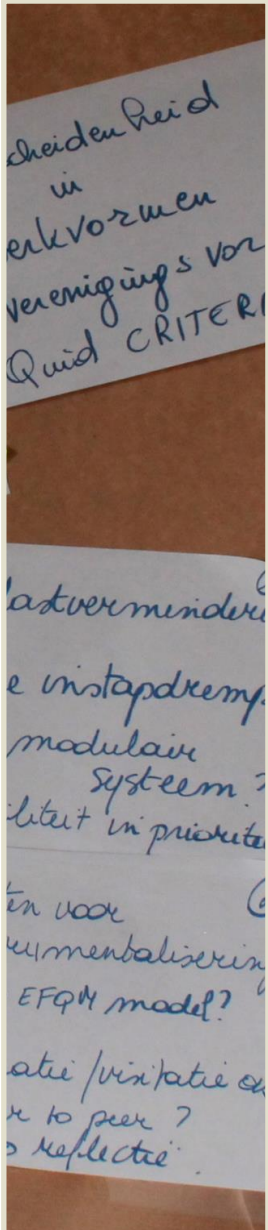 cheidenheid
in
erkvormen
verenigings vor
Quid CRITERI
lastverminderi
e instapdremp
modulair
systeem ?
iliteit in priorite
en voor
rumentaliserin
EFQM model?
atie / visitatie o
r to peer ?
reflectie.